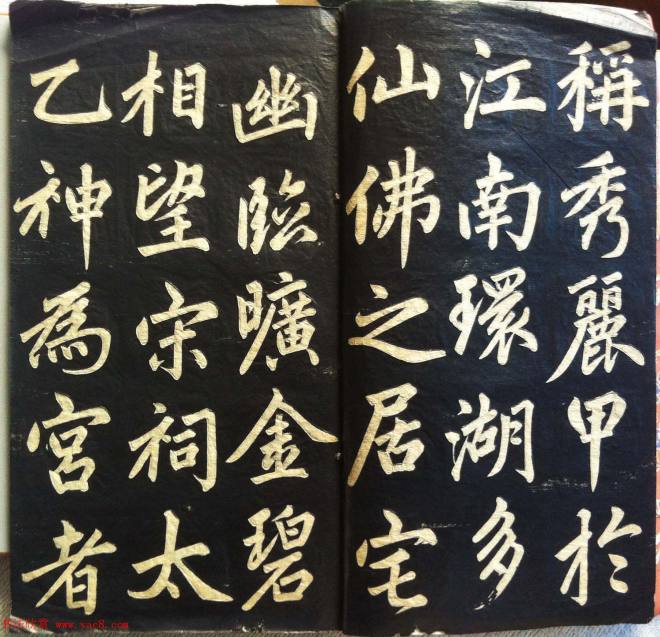 稱秀麗甲於
江南環湖多
仙佛之居宅
幽臨曠金碧
相望宋祠太
乙神為宮者
www.yac8.com